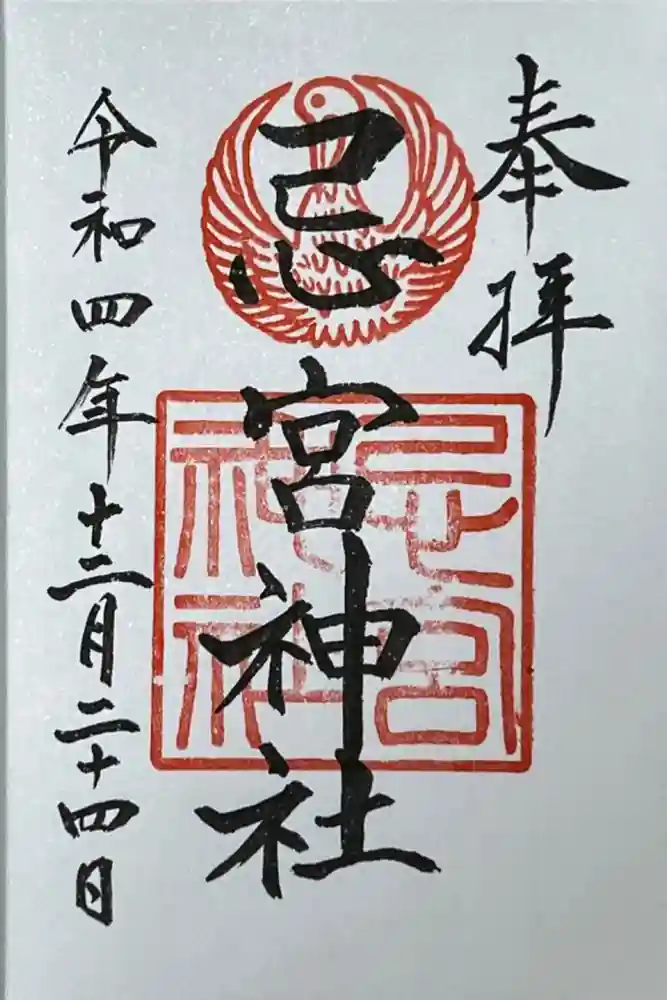 奉拝
忌宮神社
忌宮神社
令和四年十二月二十四日